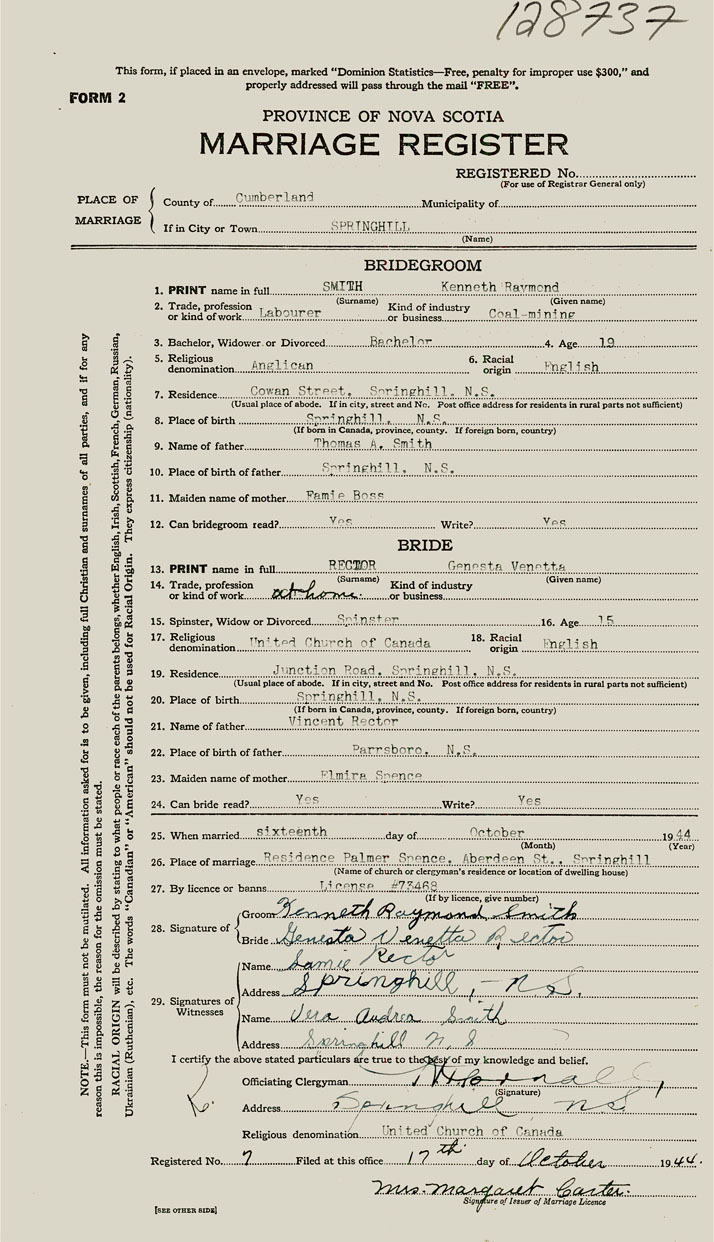 128737
This form, if placed in an envelope, marked "Dominion Statistics—Free, penalty for improper use $300," and
properly addressed will pass through the mail "FREE".
FORM 2
PROVINCE OF NOVA SCOTIA
MARRIAGE REGISTER
REGISTERED No.
(For use of Registrar General only)
PLACE OF MARRIAGE
County of Cumberland Municipality of
If in City or Town SPRINGHILL
(Name)
BRIDEGROOM
1. PRINT name in full SMITH Kenneth Raymond
(Surname) (Given name)
2. Trade, profession or kind of work Labourer Kind of industry or business Coal-mining
3. Bachelor, Widower or Divorced Bachelor 4. Age 19
5. Religious denomination Anglican 6. Racial origin English
7. Residence Cowan Street, Springhill, N.S.
(Usual place of abode. If in city, street and No. Post office address for residents in rural parts not sufficient)
8. Place of birth Springhill, N.S.
(If born in Canada, province, county. If foreign born, country)
9. Name of father Thomas A. Smith
10. Place of birth of father Springhill, N.S.
11. Maiden name of mother Famie Boss
12. Can bridegroom read? Yes Write? Yes
BRIDE
13. PRINT name in full RECTOR Genesta Venetta
(Surname) (Given name)
14. Trade, profession or kind of work at home. Kind of industry or business
15. Spinster, Widow or Divorced Spinster 16. Age 15
17. Religious denomination United Church of Canada 18. Racial origin English
19. Residence Junction Road, Springhill, N.S.
(Usual place of abode. If in city, street and No. Post office address for residents in rural parts not sufficient)
20. Place of birth Springhill, N.S.
(If born in Canada, province, county. If foreign born, country)
21. Name of father Vincent Rector
22. Place of birth of father Parrsboro, N.S.
23. Maiden name of mother Elmira Spence
24. Can bride read? Yes Write? Yes
25. When married sixteenth day of October 1944
(Month) (Year)
26. Place of marriage Residence Palmer Spence, Aberdeen St., Springhill
(Name of church or clergyman's residence or location of dwelling house)
27. By licence or banns License #73468
(If by licence, give number)
28. Signature of
Groom Kenneth Raymond Smith
Bride Genesta Venetta Rector
29. Signatures of Witnesses
Name Rector
Address Springhill, - N.S.
Name Vera Audrea Smith
Address Springhill N.S
I certify the above stated particulars are true to the best of my knowledge and belief.
Officiating Clergyman
(Signature)
Address Springhill N.S
Religious denomination United Church of Canada
Registered No. 7 Filed at this office 17th day of October 1944.
Mrs. Margaret Carter.
Signature of Issuer of Marriage Licence
[SEE OTHER SIDE]
NOTE.—This form must not be mutilated. All information asked for is to be given, including full Christian and surnames of all parties, and if for any
reason this is impossible, the reason for the omission must be stated.
RACIAL ORIGIN will be described by stating to what people or race each of the parents belongs, whether English, Irish, Scottish, French, German, Russian,
Ukrainian (Ruthenian), etc. The words "Canadian" or "American" should not be used for Racial Origin. They express citizenship (nationality).